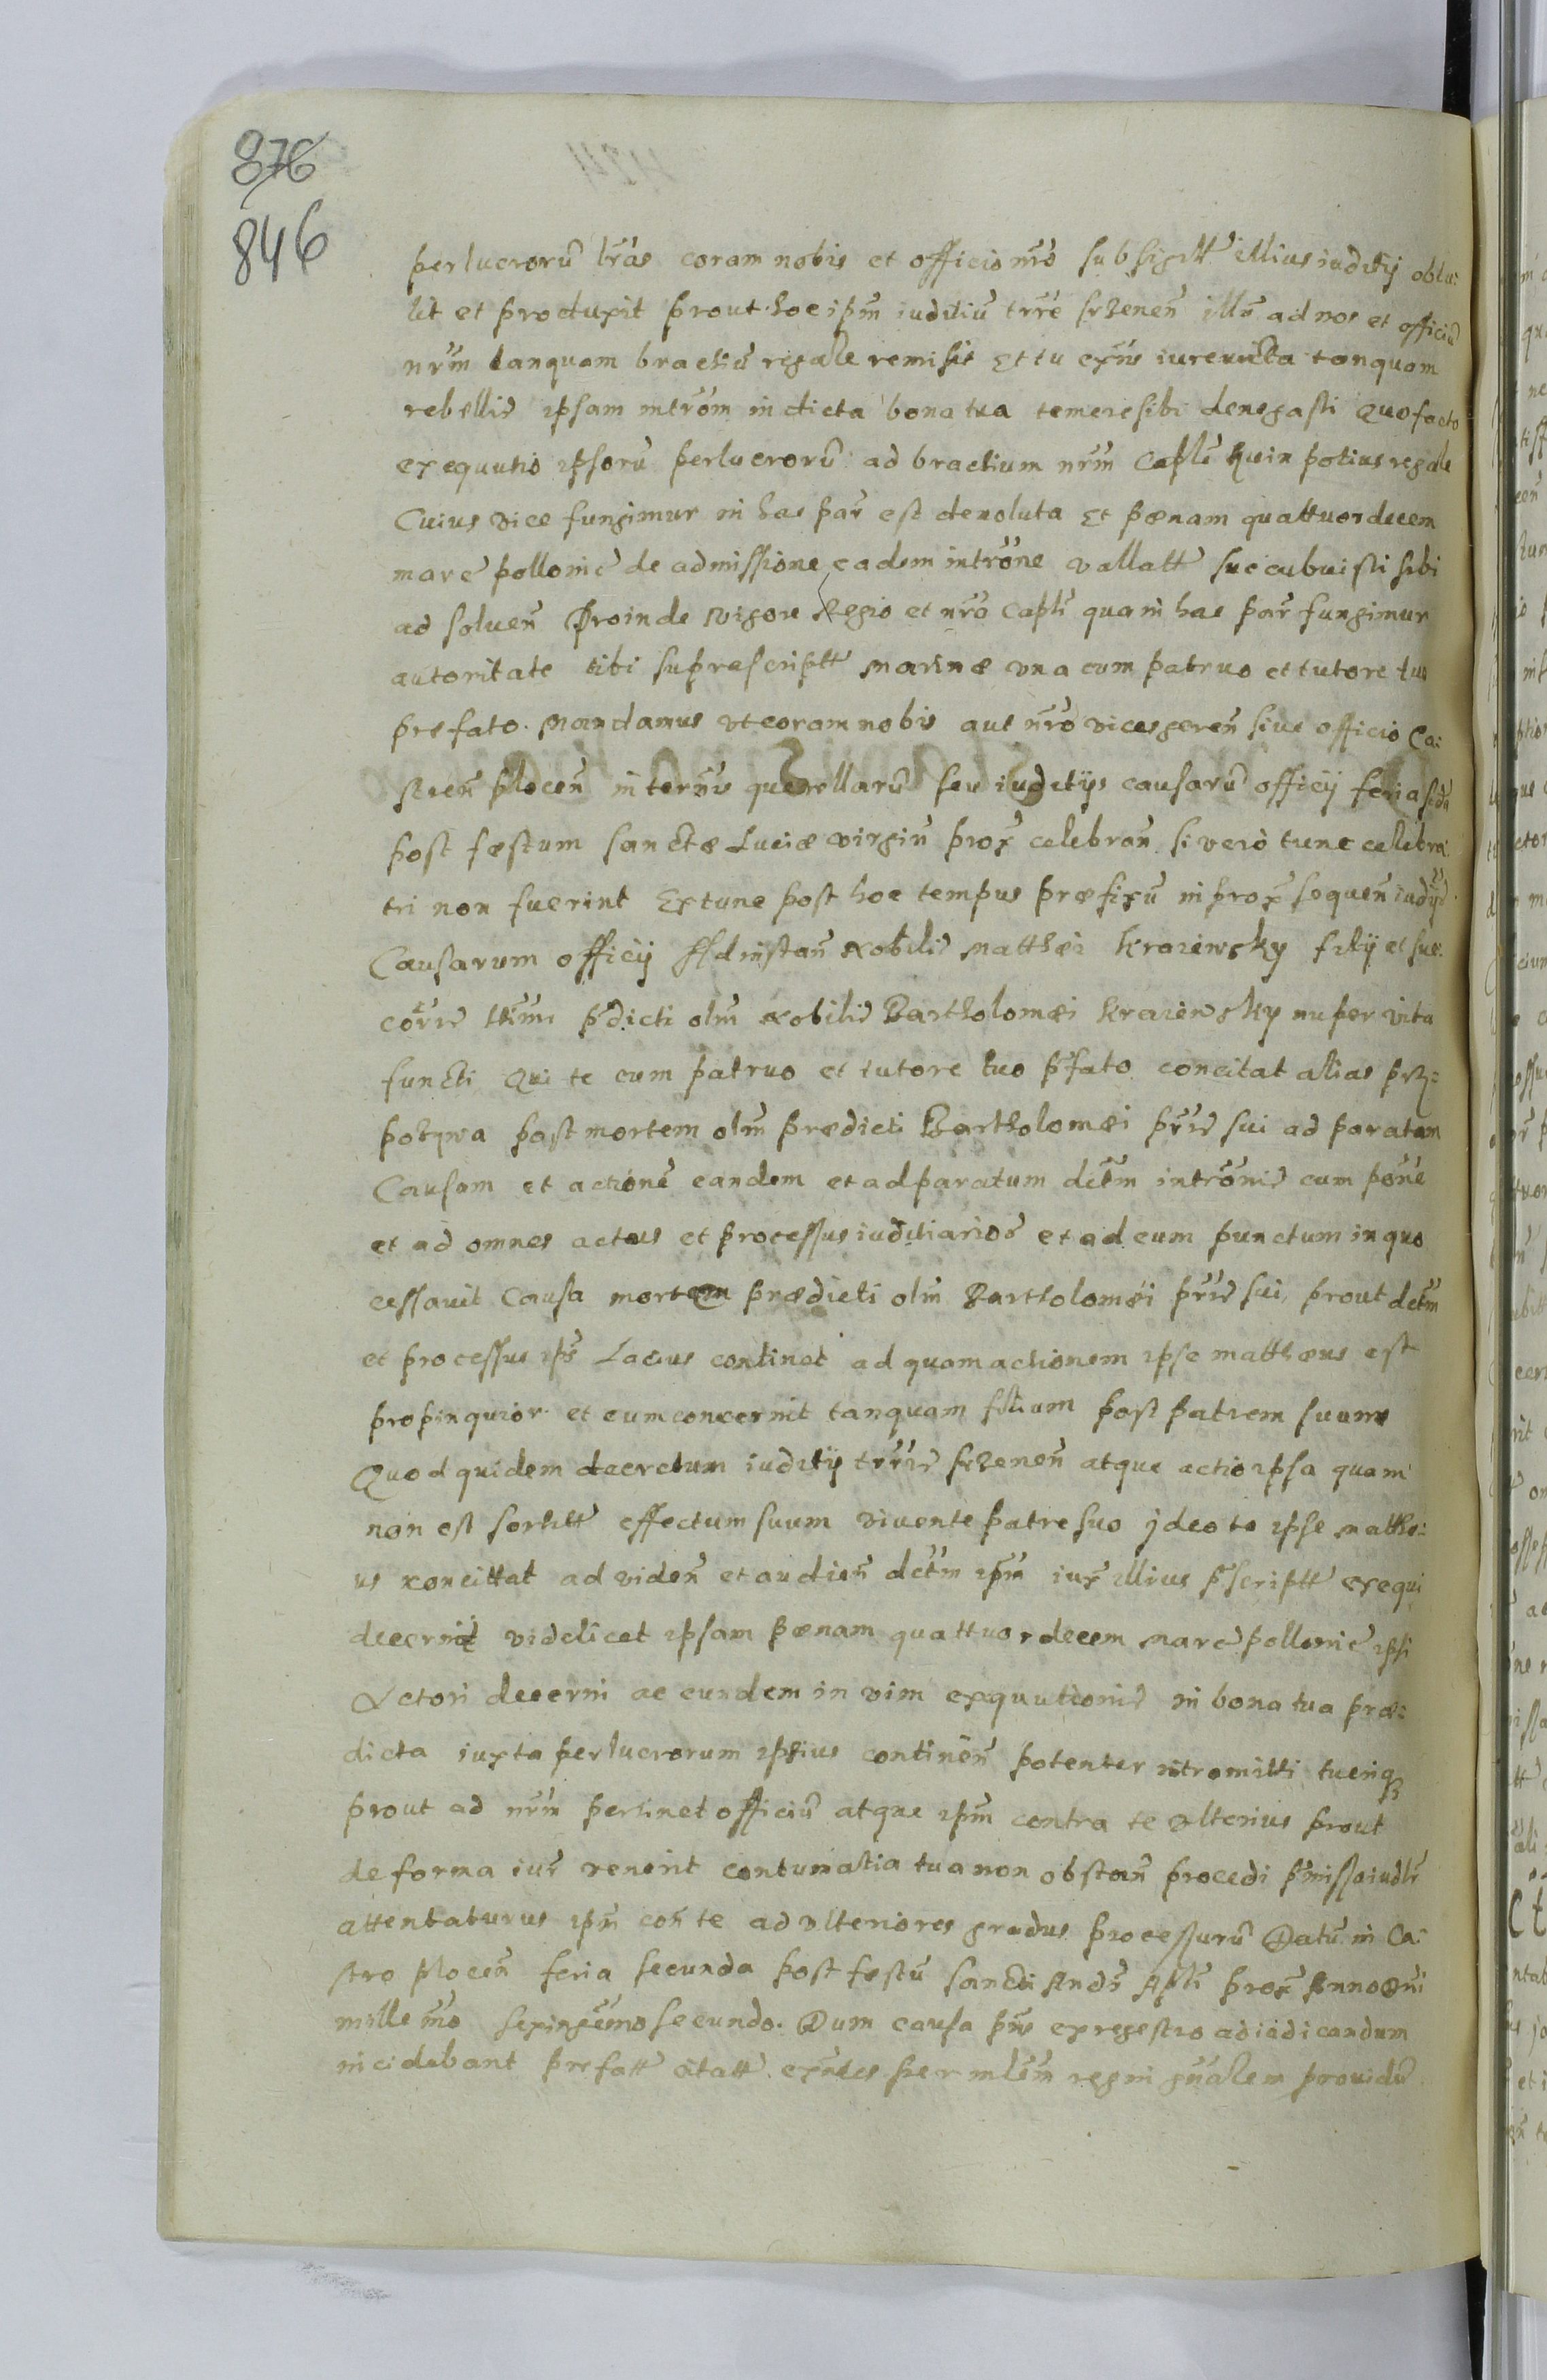 876
846
perlucrorū lr̃as coram nobis et officio nr̃o sub sigilt̃ illius iuditÿ obtu:
lit et produxit prout hoc ipm̃ iuditiū trr̃e srzenen̄ illū ad nos et officiū
nrm̃ tanquam brachiū regale remisit Et tu exn̄s iurevicta tanquam
rebellis ipsam introm̃ in dicta bona tua temere sibi denegasti Quo facto
exequutio ipsorū perlucrorū ad brachium nrm̃ Caplẽ quin potius regale
Cuius vice fungimur in hac par̃ est devoluta Et pœnam quattuordecem
marc̃ pollonic̃ de admissione eadem introm̃ne vallatt̃ succubuisti sibi
ad soluen̄ Proinde vigore Regio et nr̃o Capli qua in hac par̃ fungimur
autoritate tibi suprascriptt̃ Marinæ vna cum patruo et tutore tuo
prefato. Mandamus vt coram nobis aut nr̃o vicesgeren̄ siue officio Ca:
stren̄ plocen̄ in terñis querellarū seu iuditÿs causarū officÿ feria scd̃a
post fæstum sanctæ Luciæ virgin̄ prox̃ celebran̄ si vero tunc celebra
tri non fuerint Extunc post hoc tempus præfixū in prox̃ sequen̄ iudÿs
Causarum officÿ Ad instan̄ Nobilis Matthæi Kraiewsky filÿ et suc
coris ltimi p̃dicti olm̃ Nobilis Bartholomæi Kraiewsky nuper vita
functi Qui te cum patruo et tutore tuo p̃fato concitat alias prz:
pozywa post mortem olm̃ prædicti Bartholomæi pr̃is sui ad paratam
Causam et actionẽ eandem et ad paratum dctm̃ introm̃nis cum pone
et ad omnes actus et processus iuditiarios et ad eum punctum in quo
cessauit Causa mortem prædicti olm̃ Bartholomæi pr̃is sui, prout dctm̃
et processus ips̃ Latius continet ad quam actionem ipse matthæus est
propinquior et eum concernit tanquam filium post patrem suum
Quod quidem decretum iuditÿ trr̃is srzenen̄ atque actio ipsa quam
non est sortitt̃ effectum suum viuente patre suo jdeo te ipse Mathe:
us concittat ad viden̄ et audien̄ dctm̃ ipm̃ iux̃ illius p̃scriptt̃ exequi
decerni videlicet ipsam pœnam quattuordecem Marc̃ pollonic̃ ipsi
Actori decerni ac eundem in vim exquutionis in bona tua præ:
dicta iuxta perlucrorum ipsius continen̄ potenter intromitti tueriq;
prout ad nrm̃ pertinet officiū atque ipm̃ contra te vlterius prout
de forma iur̃ venerit contumatia tua non obstan̄ procedi p̃missa iudlr̃
attentaturus ipm̃ con̄ te ad vlteriores gradus processurū Datū in Ca:
stro plocen̄ feria secunda post festū sancti Andr̃ Apli prox̃ Anno Dn̄i
millemõ sexingẽmo secundo. Dum causa pn̄s ex regestro adiudicandum
incidebant prefatt̃ citatt̃ exn̄tes per mlẽm regni gnãlem prouidũ